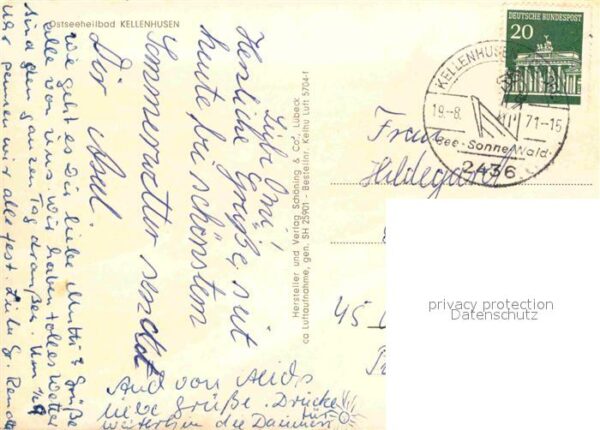 Ostseeheilbad KELLENHUSEN
Liebe Omi!
Herzliche Grüße mit
heute bei schönstem
Sommerwetter sendet
Dir
Wie geht es Dir liebe Mutti?
alle von uns. Wir haben tolles Wetter
sind den ganzen Tag draußen. Um 1/2 9
pennen wir alle fest. Liebe Gr. Renate
Grüße
Und von
liebe Grüße. Drücke
weiterhin die Daumen
für
Hersteller und Verlag Schöning & Co., Lübeck
ca Luftaufnahme, gen. SH 25901 - Bestellnr. Kelhu Luft 5704-f
DEUTSCHE BUNDESPOST
20
KELLENHUSEN
19.-8. 71-15
See·Sonne·Wald
2436
Frau
Hildegard
45
privacy protection
Datenschutz